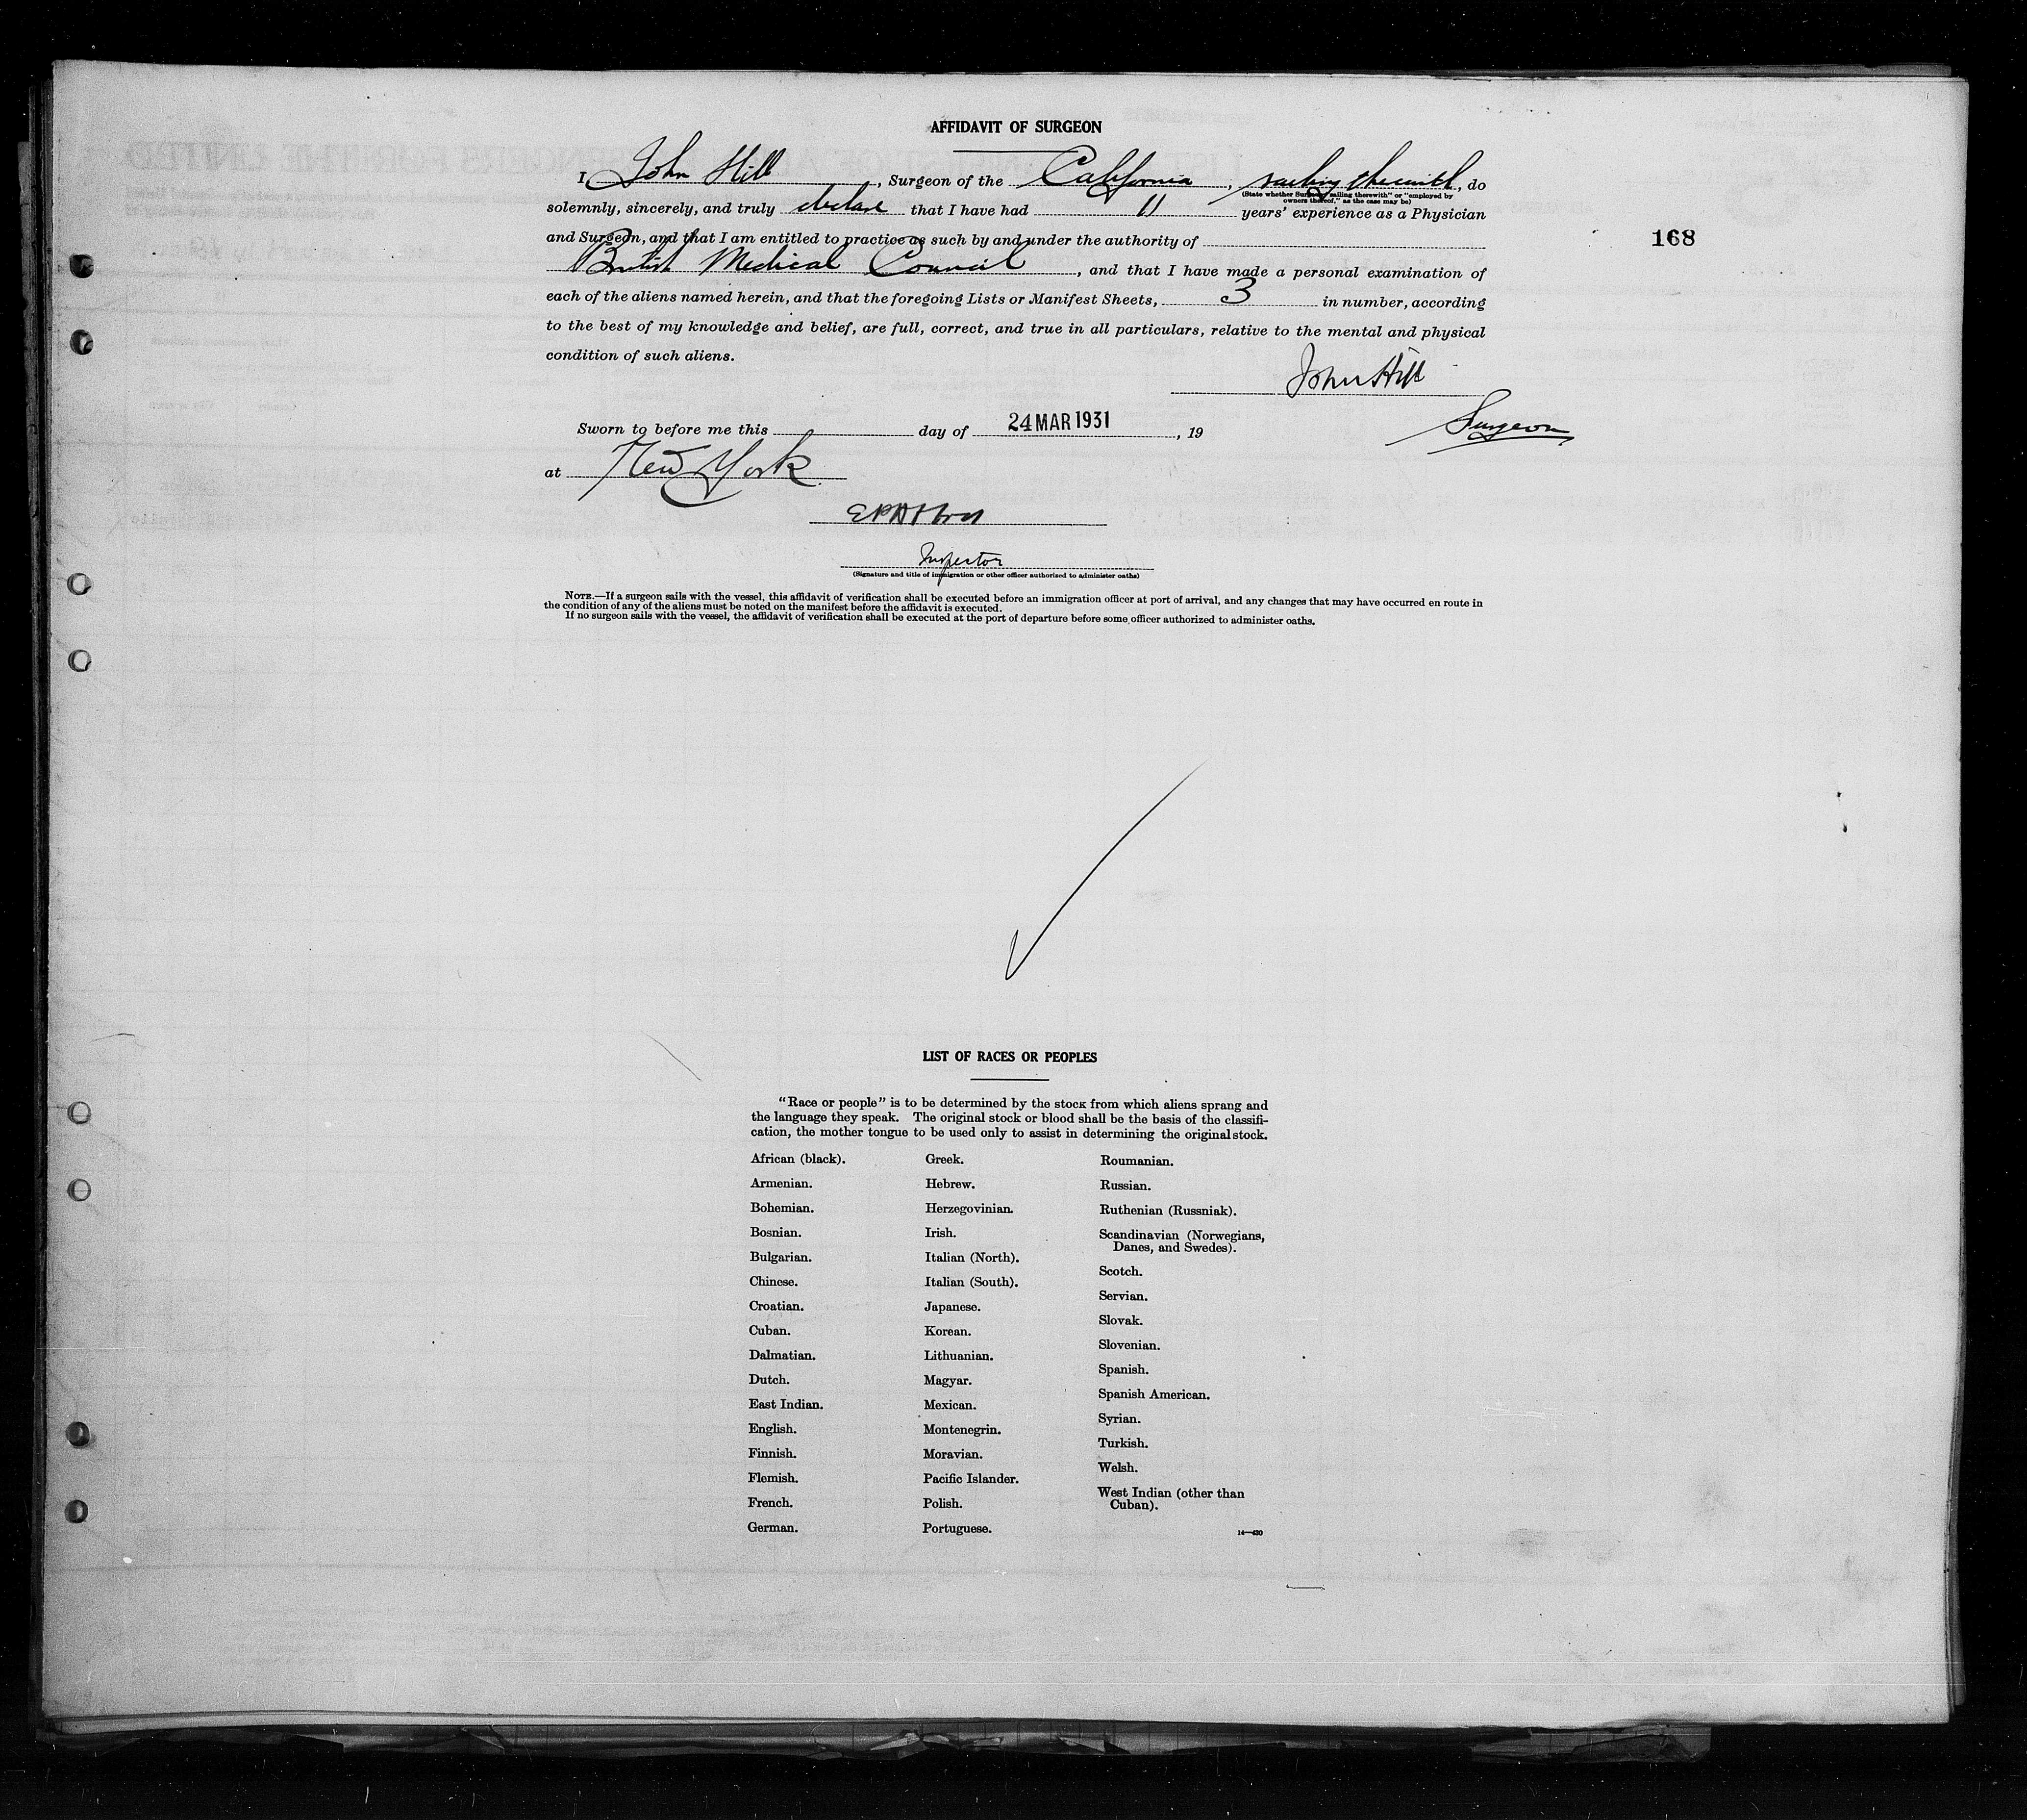 AFFIDAVIT OF SURGEON
I, John Hill, Surgeon of the California, sailing therewith, do
(State whether Surgeon "sailing therewith" or "employed by
owners thereof," as the case may be)
solemnly, sincerely, and truly declare that I have had 11 years' experience as a Physician
and Surgeon, and that I am entitled to practice as such by and under the authority of
168
British Medical Council, and that I have made a personal examination of
each of the aliens named herein, and that the foregoing Lists or Manifest Sheets, 3 in number, according
to the best of my knowledge and belief, are full, correct, and true in all particulars, relative to the mental and physical
condition of such aliens.
John Hill
Surgeon
Sworn to before me this day of 24 MAR 1931, 19
at New York.
Inspector
(Signature and title of immigration or other officer authorized to administer oaths)
NOTE.—If a surgeon sails with the vessel, this affidavit of verification shall be executed before an immigration officer at port of arrival, and any changes that may have occurred en route in
the condition of any of the aliens must be noted on the manifest before the affidavit is executed.
If no surgeon sails with the vessel, the affidavit of verification shall be executed at the port of departure before some officer authorized to administer oaths.
LIST OF RACES OR PEOPLES
"Race or people" is to be determined by the stock from which aliens sprang and
the language they speak. The original stock or blood shall be the basis of the classifi-
cation, the mother tongue to be used only to assist in determining the original stock.
African (black).
Armenian.
Bohemian.
Bosnian.
Bulgarian.
Chinese.
Croatian.
Cuban.
Dalmatian.
Dutch.
East Indian.
English.
Finnish.
Flemish.
French.
German.
Greek.
Hebrew.
Herzegovinian.
Irish.
Italian (North).
Italian (South).
Japanese.
Korean.
Lithuanian.
Magyar.
Mexican.
Montenegrin.
Moravian.
Pacific Islander.
Polish.
Portuguese.
Roumanian.
Russian.
Ruthenian (Russniak).
Scandinavian (Norwegians,
Danes, and Swedes).
Scotch.
Servian.
Slovak.
Slovenian.
Spanish.
Spanish American.
Syrian.
Turkish.
Welsh.
West Indian (other than
Cuban).
14—430